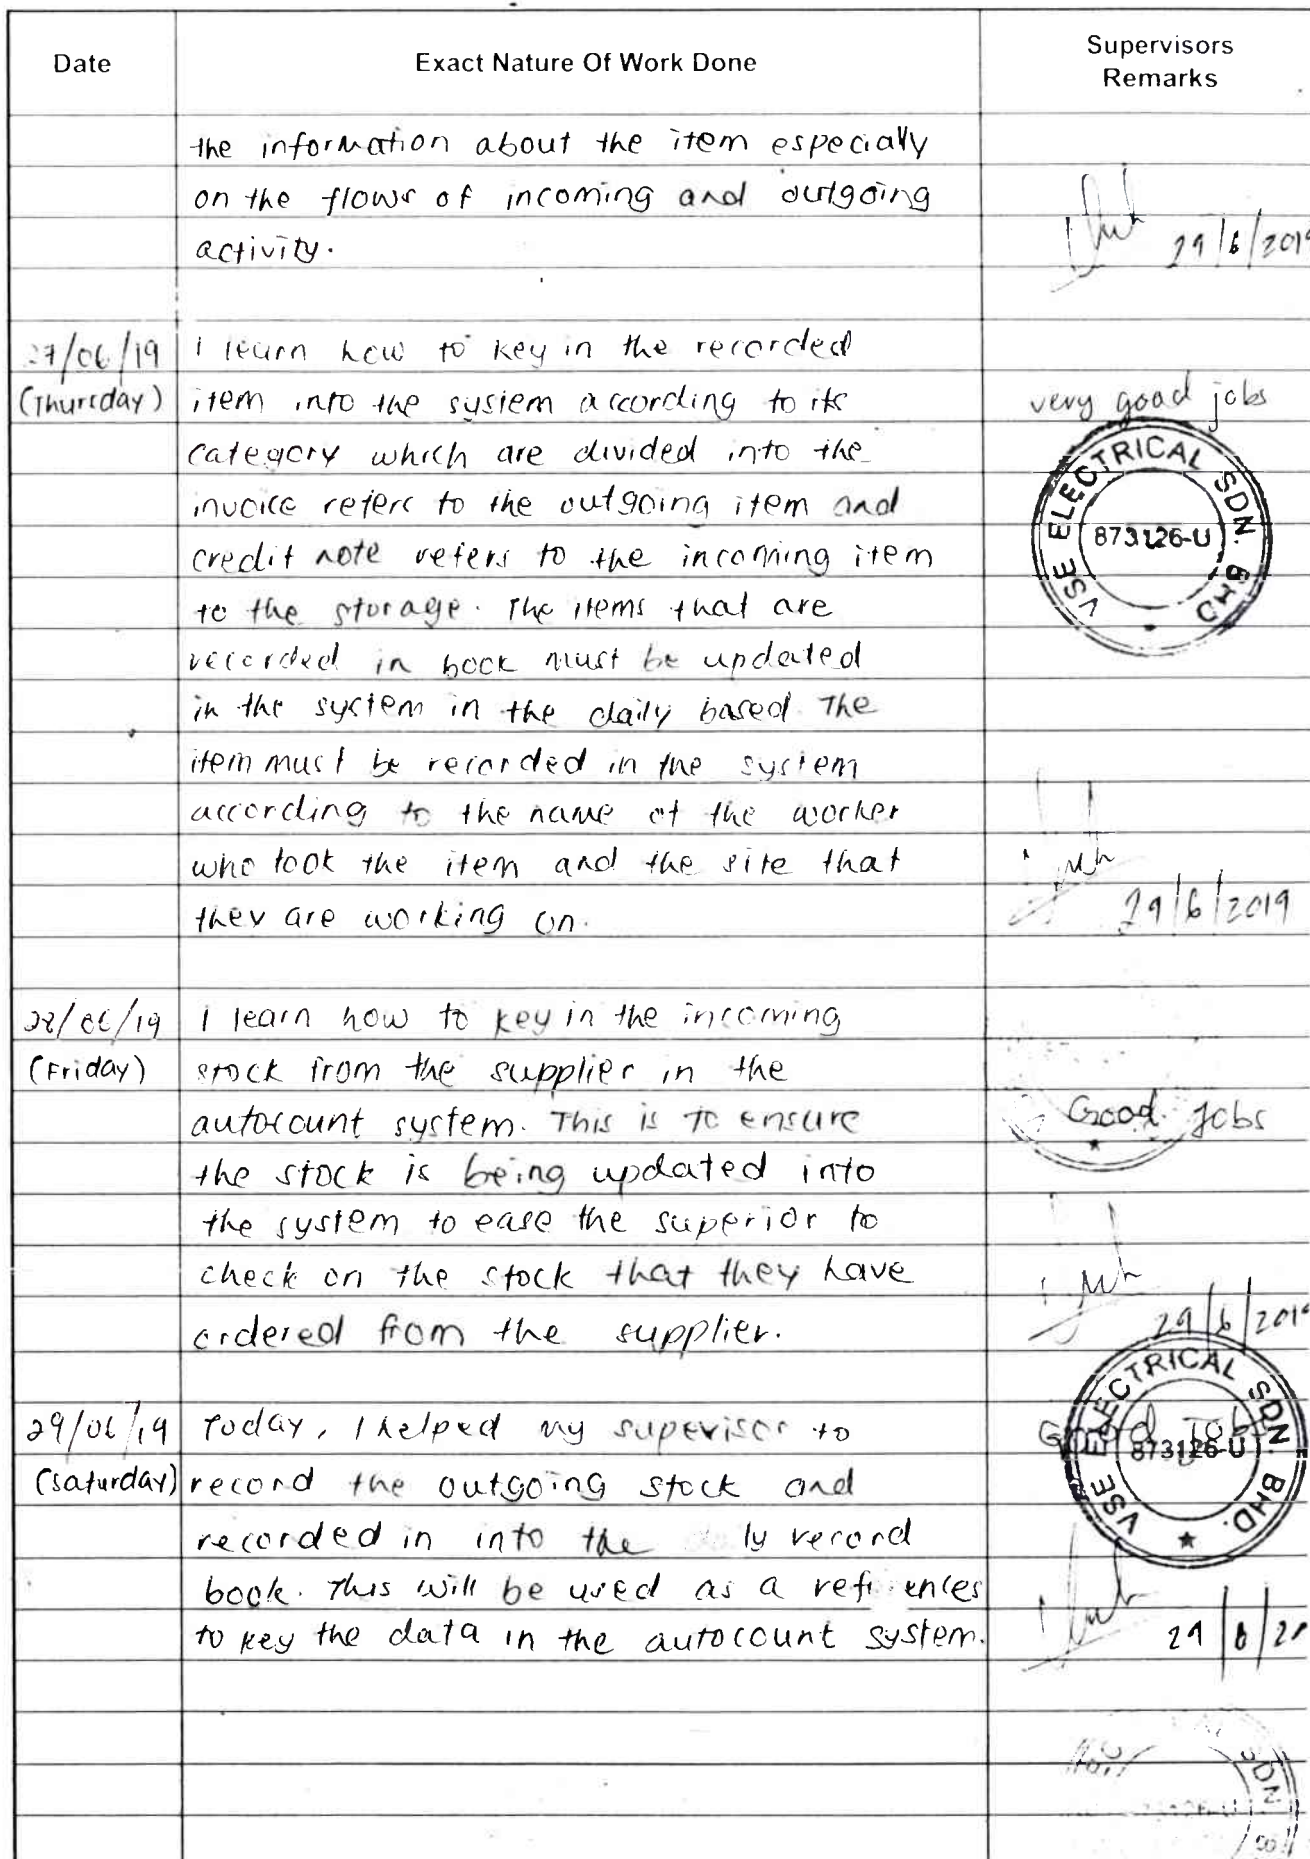 Date
Exact Nature Of Work Done
Supervisors
Remarks
the information about the item especially
on the flows of incoming and outgoing
activity.
29/6/2019
27/06/19
(Thursday)
I learn how to key in the recorded
item into the system according to its
category which are divided into the
invoice refers to the outgoing item and
credit note refers to the incoming item
to the storage. The items that are
recorded in book must be updated
in the system in the daily based. The
item must be recorded in the system
according to the name of the worker
who took the item and the site that
they are working on.
very good jobs
VSE ELECTRICAL SDN. BHD
873126-U
29/6/2019
28/06/19
(Friday)
I learn how to key in the incoming
stock from the supplier in the
autocount system. This is to ensure
the stock is being updated into
the system to ease the superior to
check on the stock that they have
ordered from the supplier.
Good jobs
29/6/201
29/06/19
(Saturday)
Today, I helped my supervisor to
record the outgoing stock and
recorded in into the ly record
book. This will be used as a ref ences
to key the data in the autocount system.
Good Jobs
VSE ELECTRICAL SDN. BHD.
873126-U
29/6/20
SDN